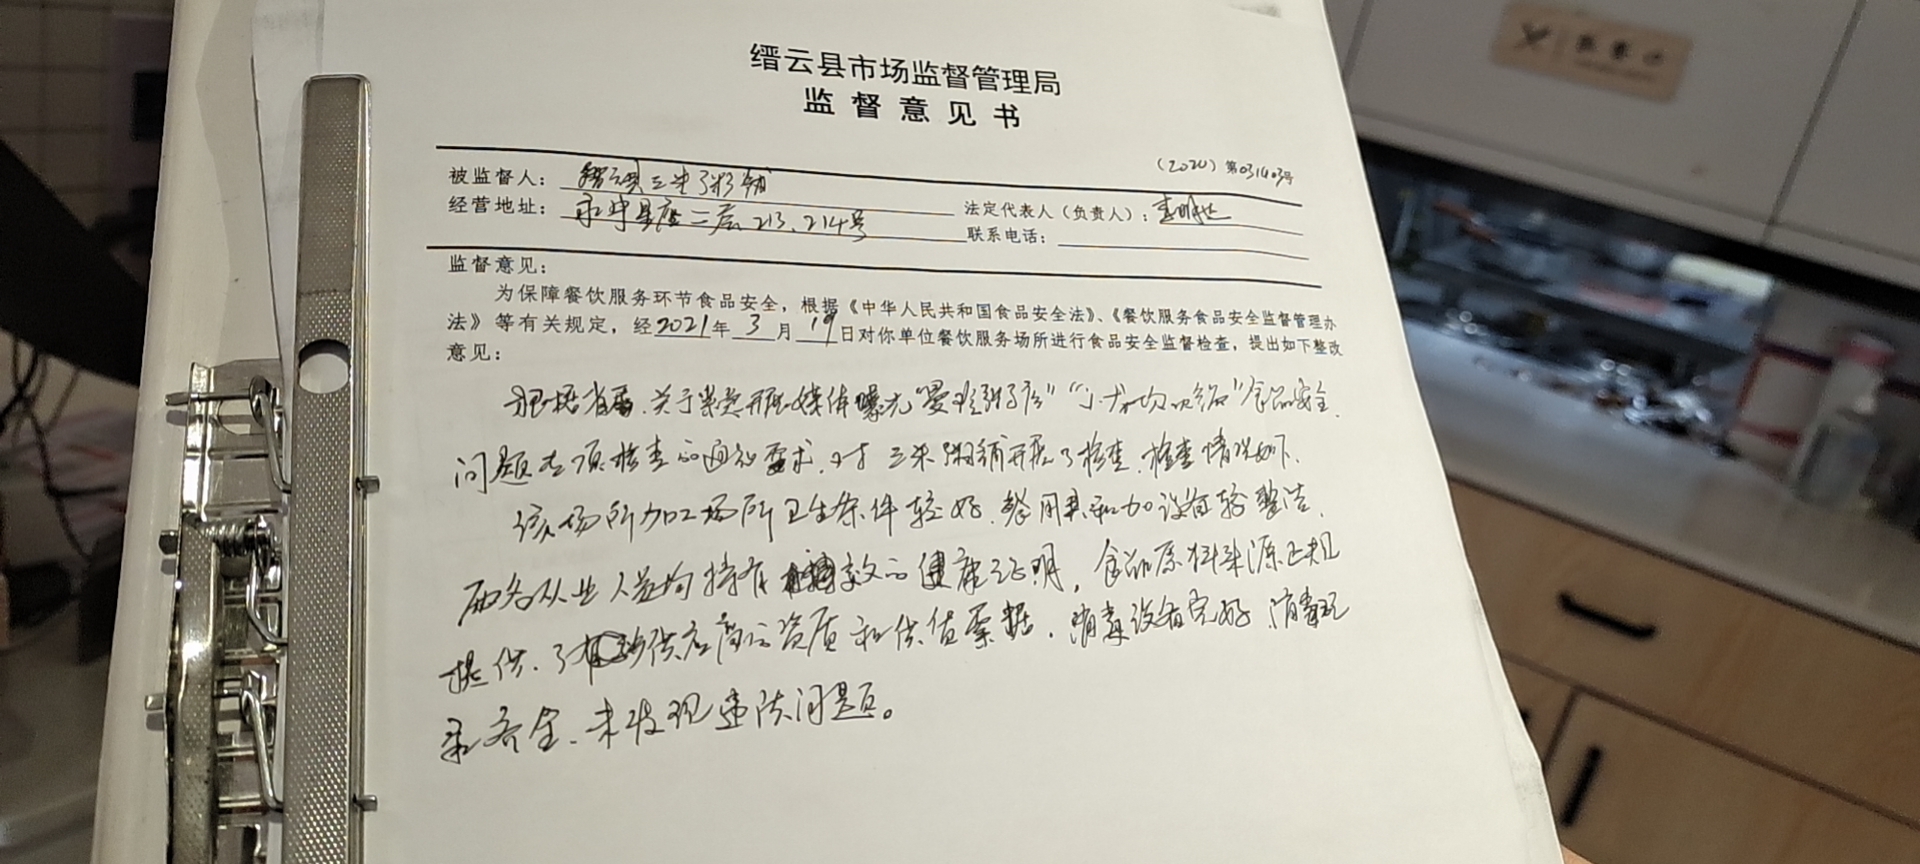 缙云县市场监督管理局
监督意见书
第031403号
被监督人：缙云县三米粥铺
经营地址：二层213、214号
法定代表人（负责人）：
联系电话：
监督意见：
为保障餐饮服务环节食品安全，根据《中华人民共和国食品安全法》、《餐饮服务食品安全监督管理办
法》等有关规定，经2021年3月19日对你单位餐饮服务场所进行食品安全监督检查，提出如下整改
意见：
根据省局关于开展媒体曝光“曼玲粥店”“小龙坎火锅”食品安全
问题专项检查的通知要求，对三米粥铺开展了检查，检查情况如下，
该场所加工场所卫生条件较好，餐用具和加设备较整洁，
两名从业人员均持有效的健康证明，食品原料来源正规
提供了供应商的资质和供货票据，消毒设备完好，消毒记
录齐全，未发现违法问题。